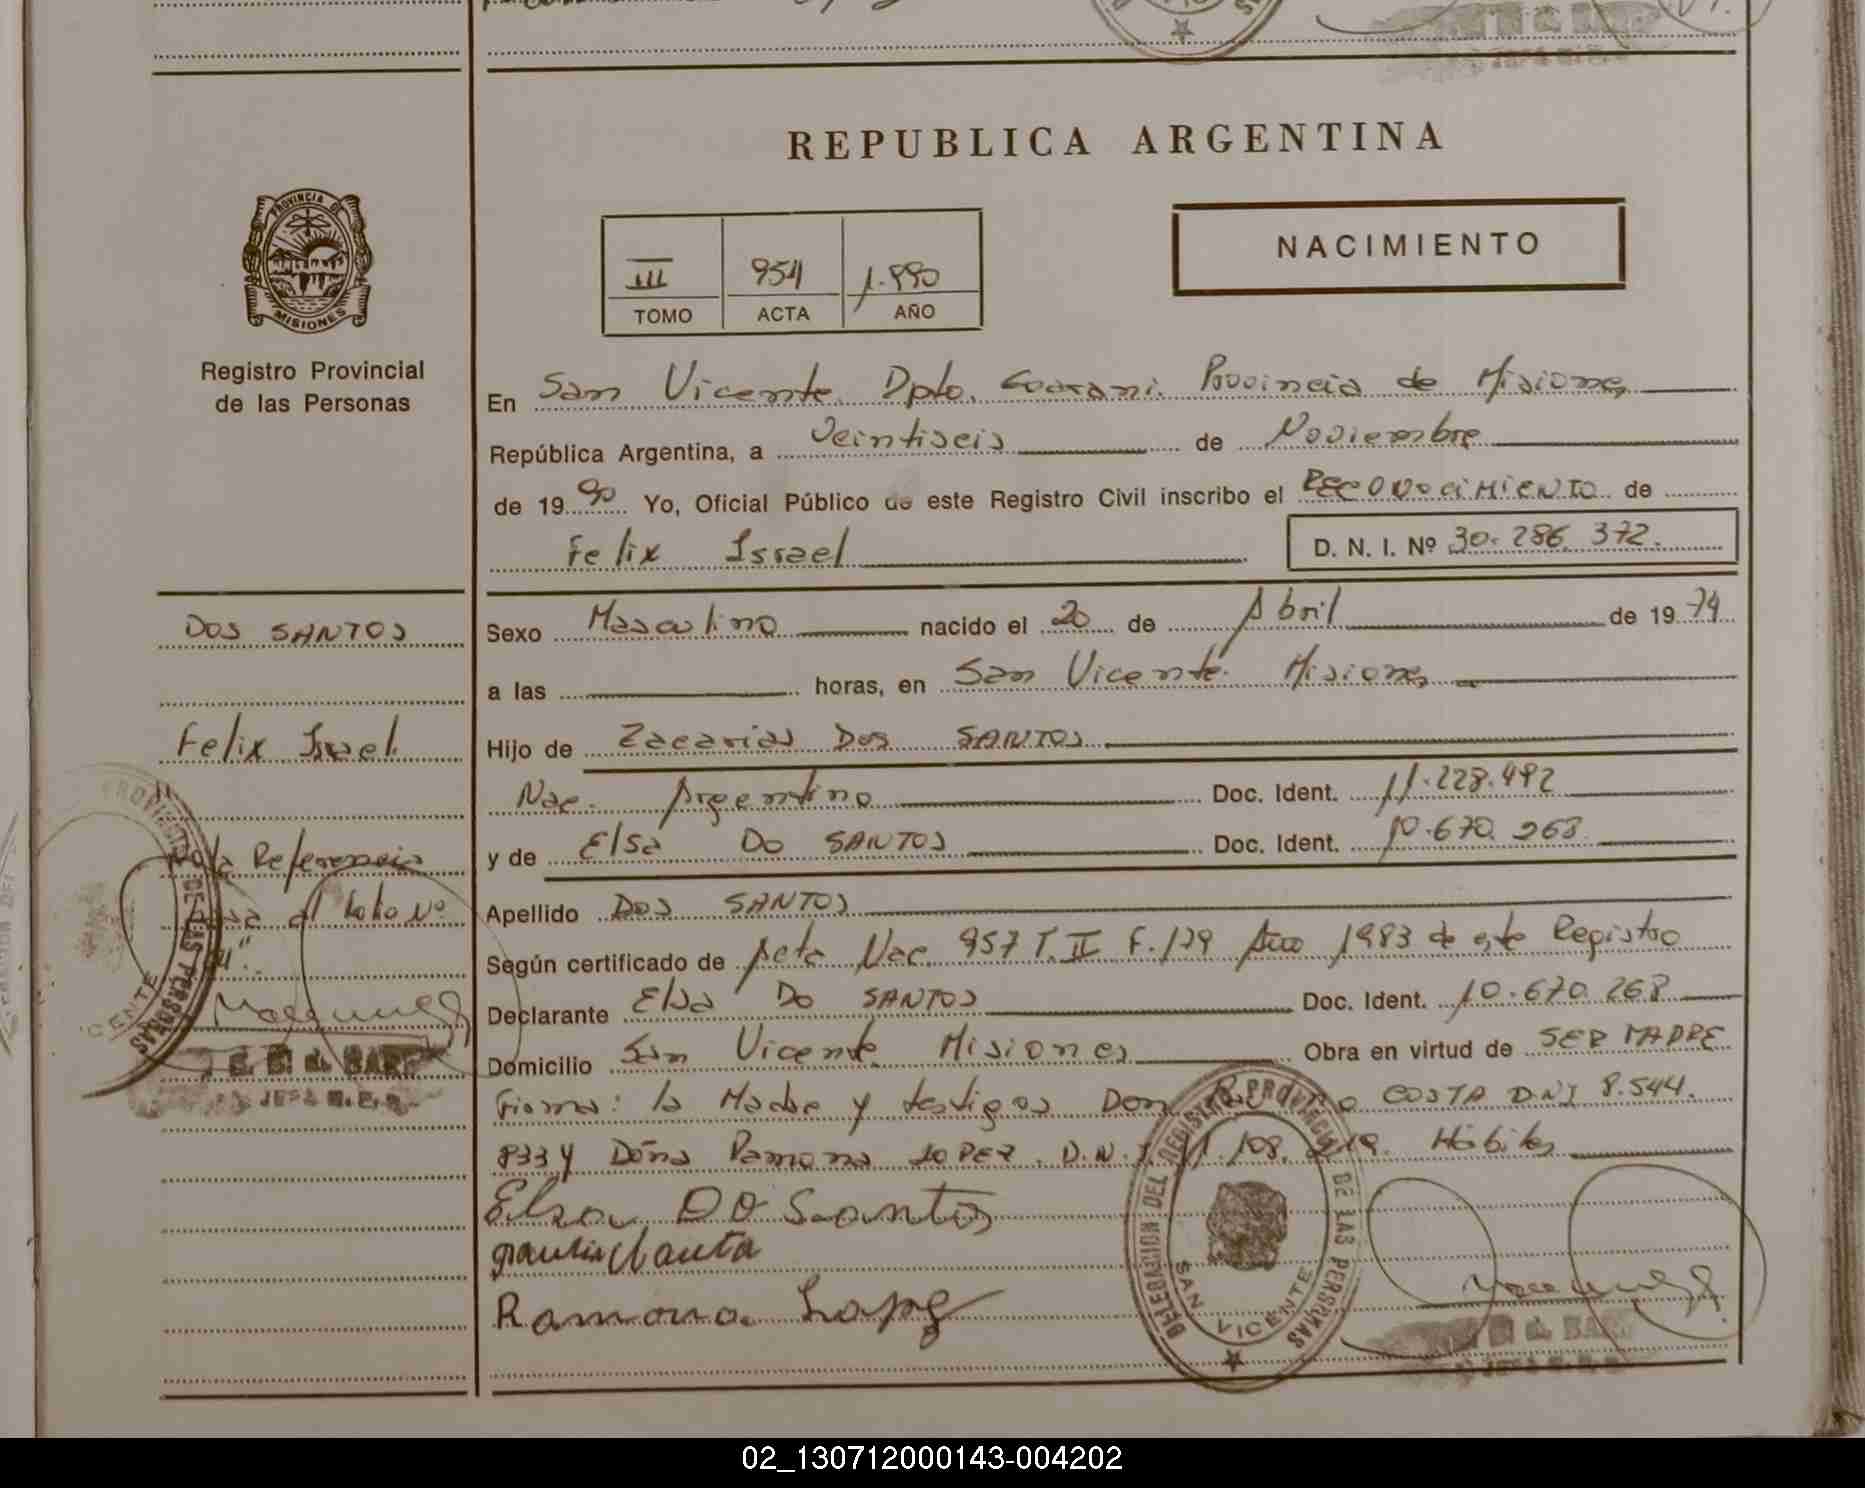 REPUBLICA ARGENTINA
PROVINCIA DE
MISIONES
Registro Provincial
de las Personas
III 954 1.990
TOMO ACTA AÑO
NACIMIENTO
En San Vicente. Dpto. Guarani. Provincia de Misiones
República Argentina, a Veintiseis de Noviembre
de 1990 Yo, Oficial Público de este Registro Civil inscribo el RECONOCIMIENTO de
Felix Israel D. N. I. Nº 30. 286. 372.
DOS SANTOS
Sexo Masculino nacido el 20 de Abril de 1974
a las horas, en San Vicente. Misiones
Felix Israel.
Hijo de Zacarias Dos SANTOS
Nac. Argentino Doc. Ident. 11.228.492
y de Elsa Do SANTOS Doc. Ident. 10.670.268
Nota Referencia
al folio Nº
Apellido Dos SANTOS
Según certificado de Acta Nac. 957 T. II F. 179 Año 1983 de este Registro
Declarante Elsa Do SANTOS Doc. Ident. 10.670.268
Domicilio San Vicente Misiones Obra en virtud de SER MADRE
Firma: la Madre y testigos Don COSTA D.N.I 8.544.
833 y Doña Ramona LOPEZ. D.N.I. 108. Hábiles
Elsa DO Santos
Ramona Lopez
DELEGACION DEL REGISTRO PROVINCIAL DE LAS PERSONAS
SAN VICENTE
02_130712000143-004202